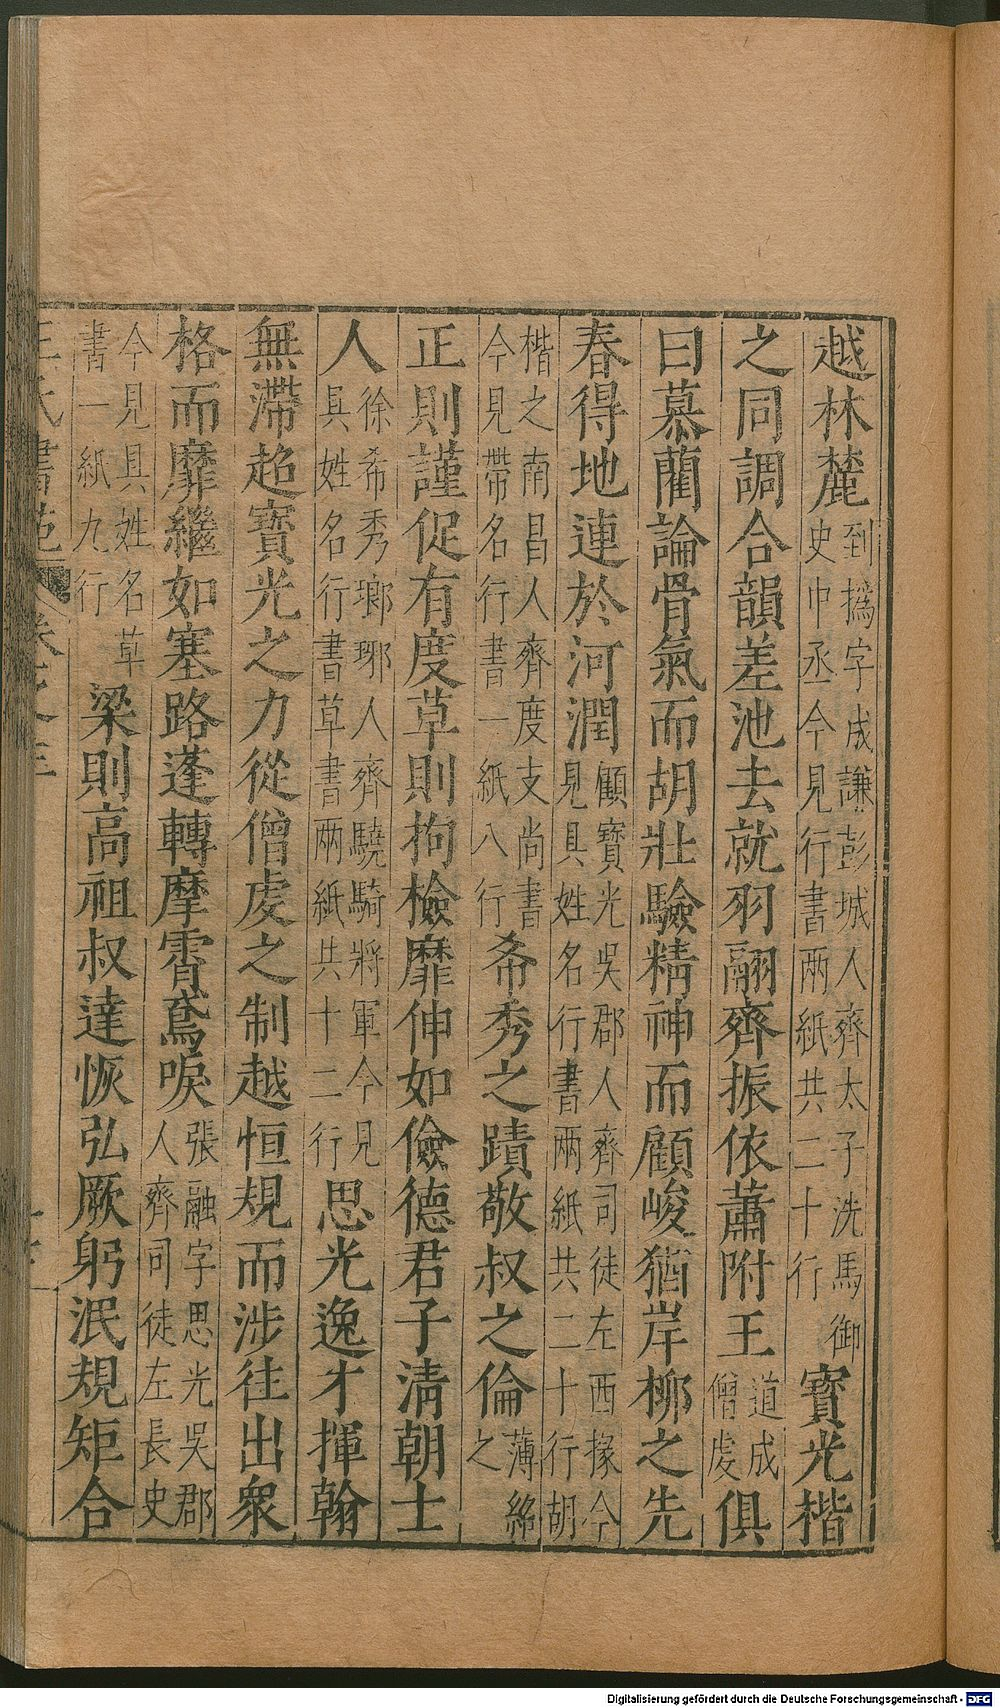 越林麓到撝字成謙彭城人齊太子洗馬御史中丞今見行書兩紙共二十行寶光揩
之同調合韻差池去就羽翮齊振依蕭附王道成僧虔俱
曰慕藺論骨氣而胡壯驗精神而顧峻猶岸柳之先
春得地連於河潤顧寶光吳郡人齊司徒左西掾今見具姓名行書兩紙共二十行胡
揩之南昌人齊度支尚書今見帶名行書一紙八行希秀之蹟敬叔之倫薄紹之
正則謹促有度草則拘檢靡伸如儉德君子清朝士
人徐希秀瑯琊人齊驍騎將軍今見具姓名行書草書兩紙共十二行思光逸才揮翰
無滯超寶光之力從僧虔之制越恒規而涉往出衆
格而靡繼如塞路蓬轉摩霄鳶唳張融字思光吳郡人齊司徒左長史
今見具姓名草書一紙九行梁則高祖叔達恢弘厥躬泯規矩合
王氏書苑 卷之三
Digitalisierung gefördert durch die Deutsche Forschungsgemeinschaft - DFG